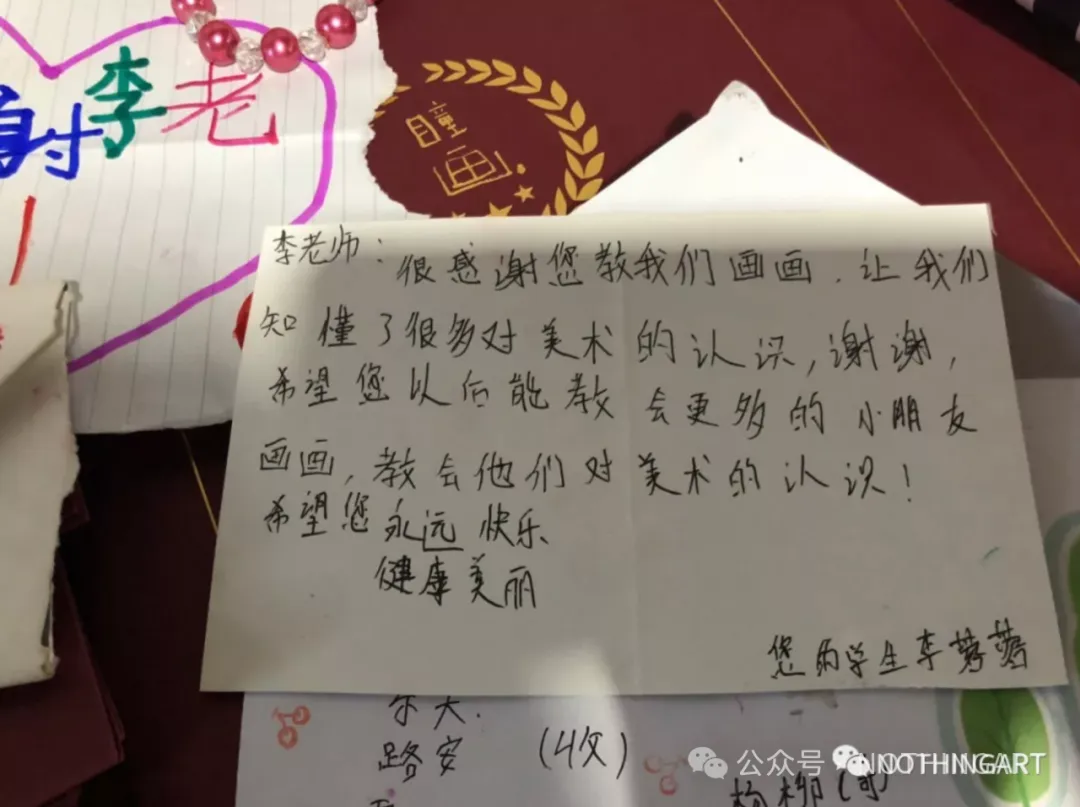 谢李老
瞳画
李老师:
很感谢您教我们画画.让我们
知懂了很多对美术的认识,谢谢,
希望您以后能教会更多的小朋友
画画,教会他们对美术的认识!
希望您永远快乐
健康美丽
您的学生李
路安 (收)
公众号 NOTHINGART